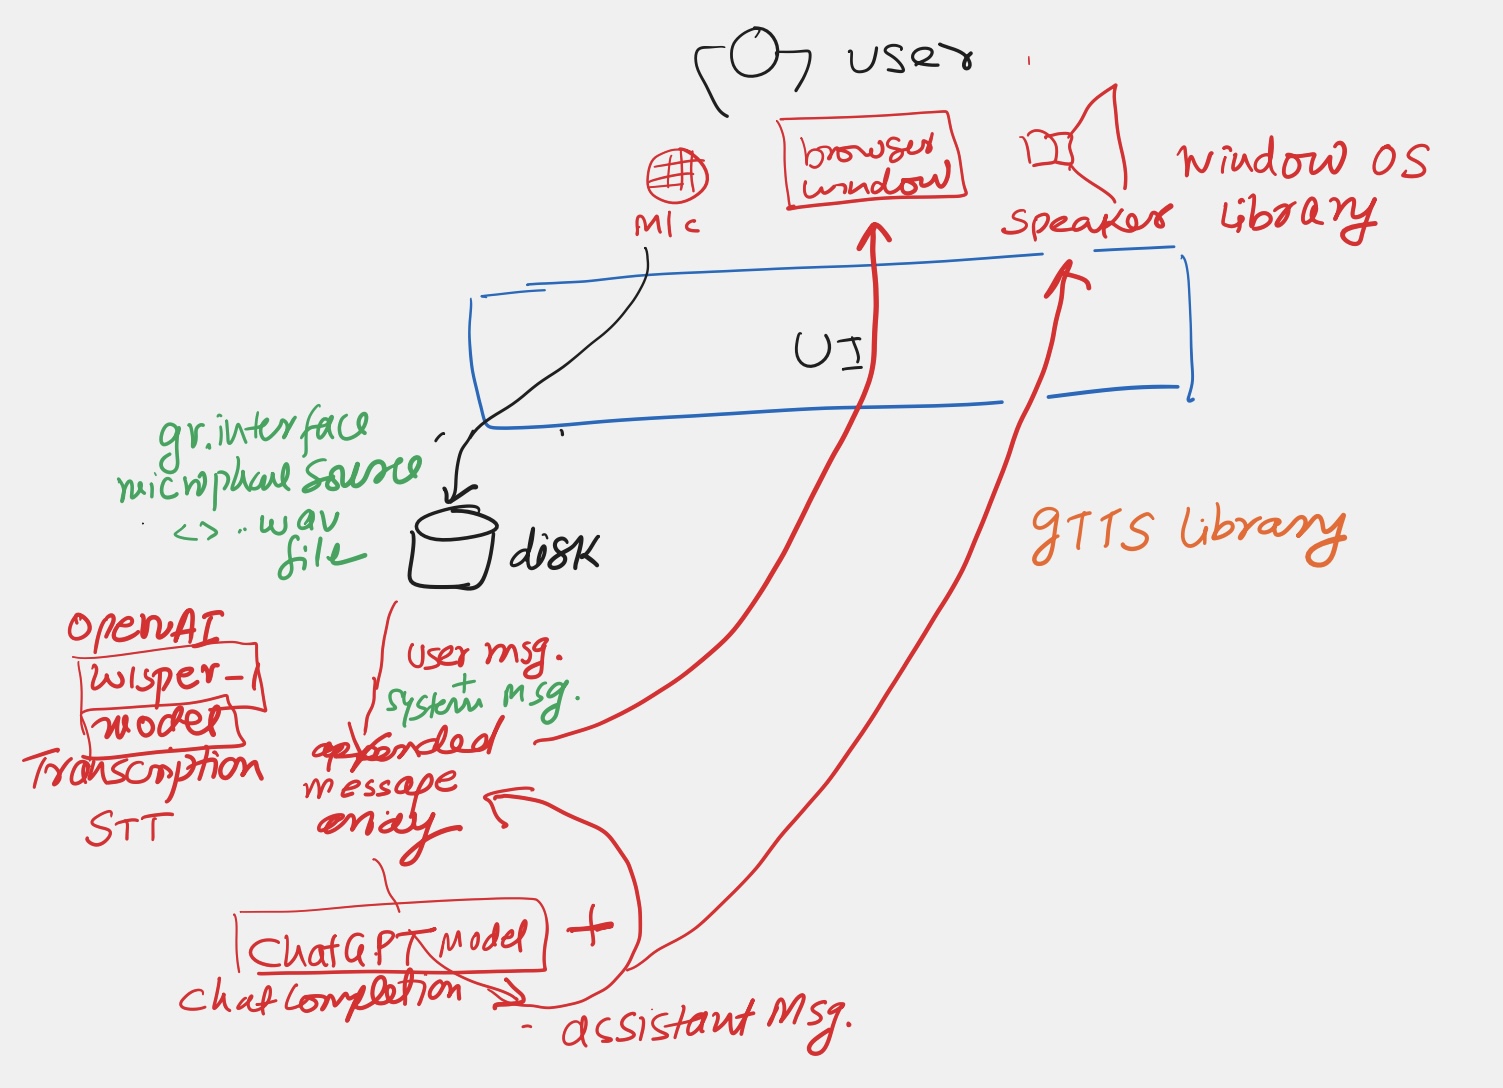 user
browser
window
Mic
speaker
window OS
Library
UI
gr.interface
source
<> .. wav
file
disk
gTTS Library
OpenAI
wisper-1
model
Transcription
STT
user msg.
+
system msg.
appended
message
array
ChatGPT Model
+
chat completion
- assistant Msg.